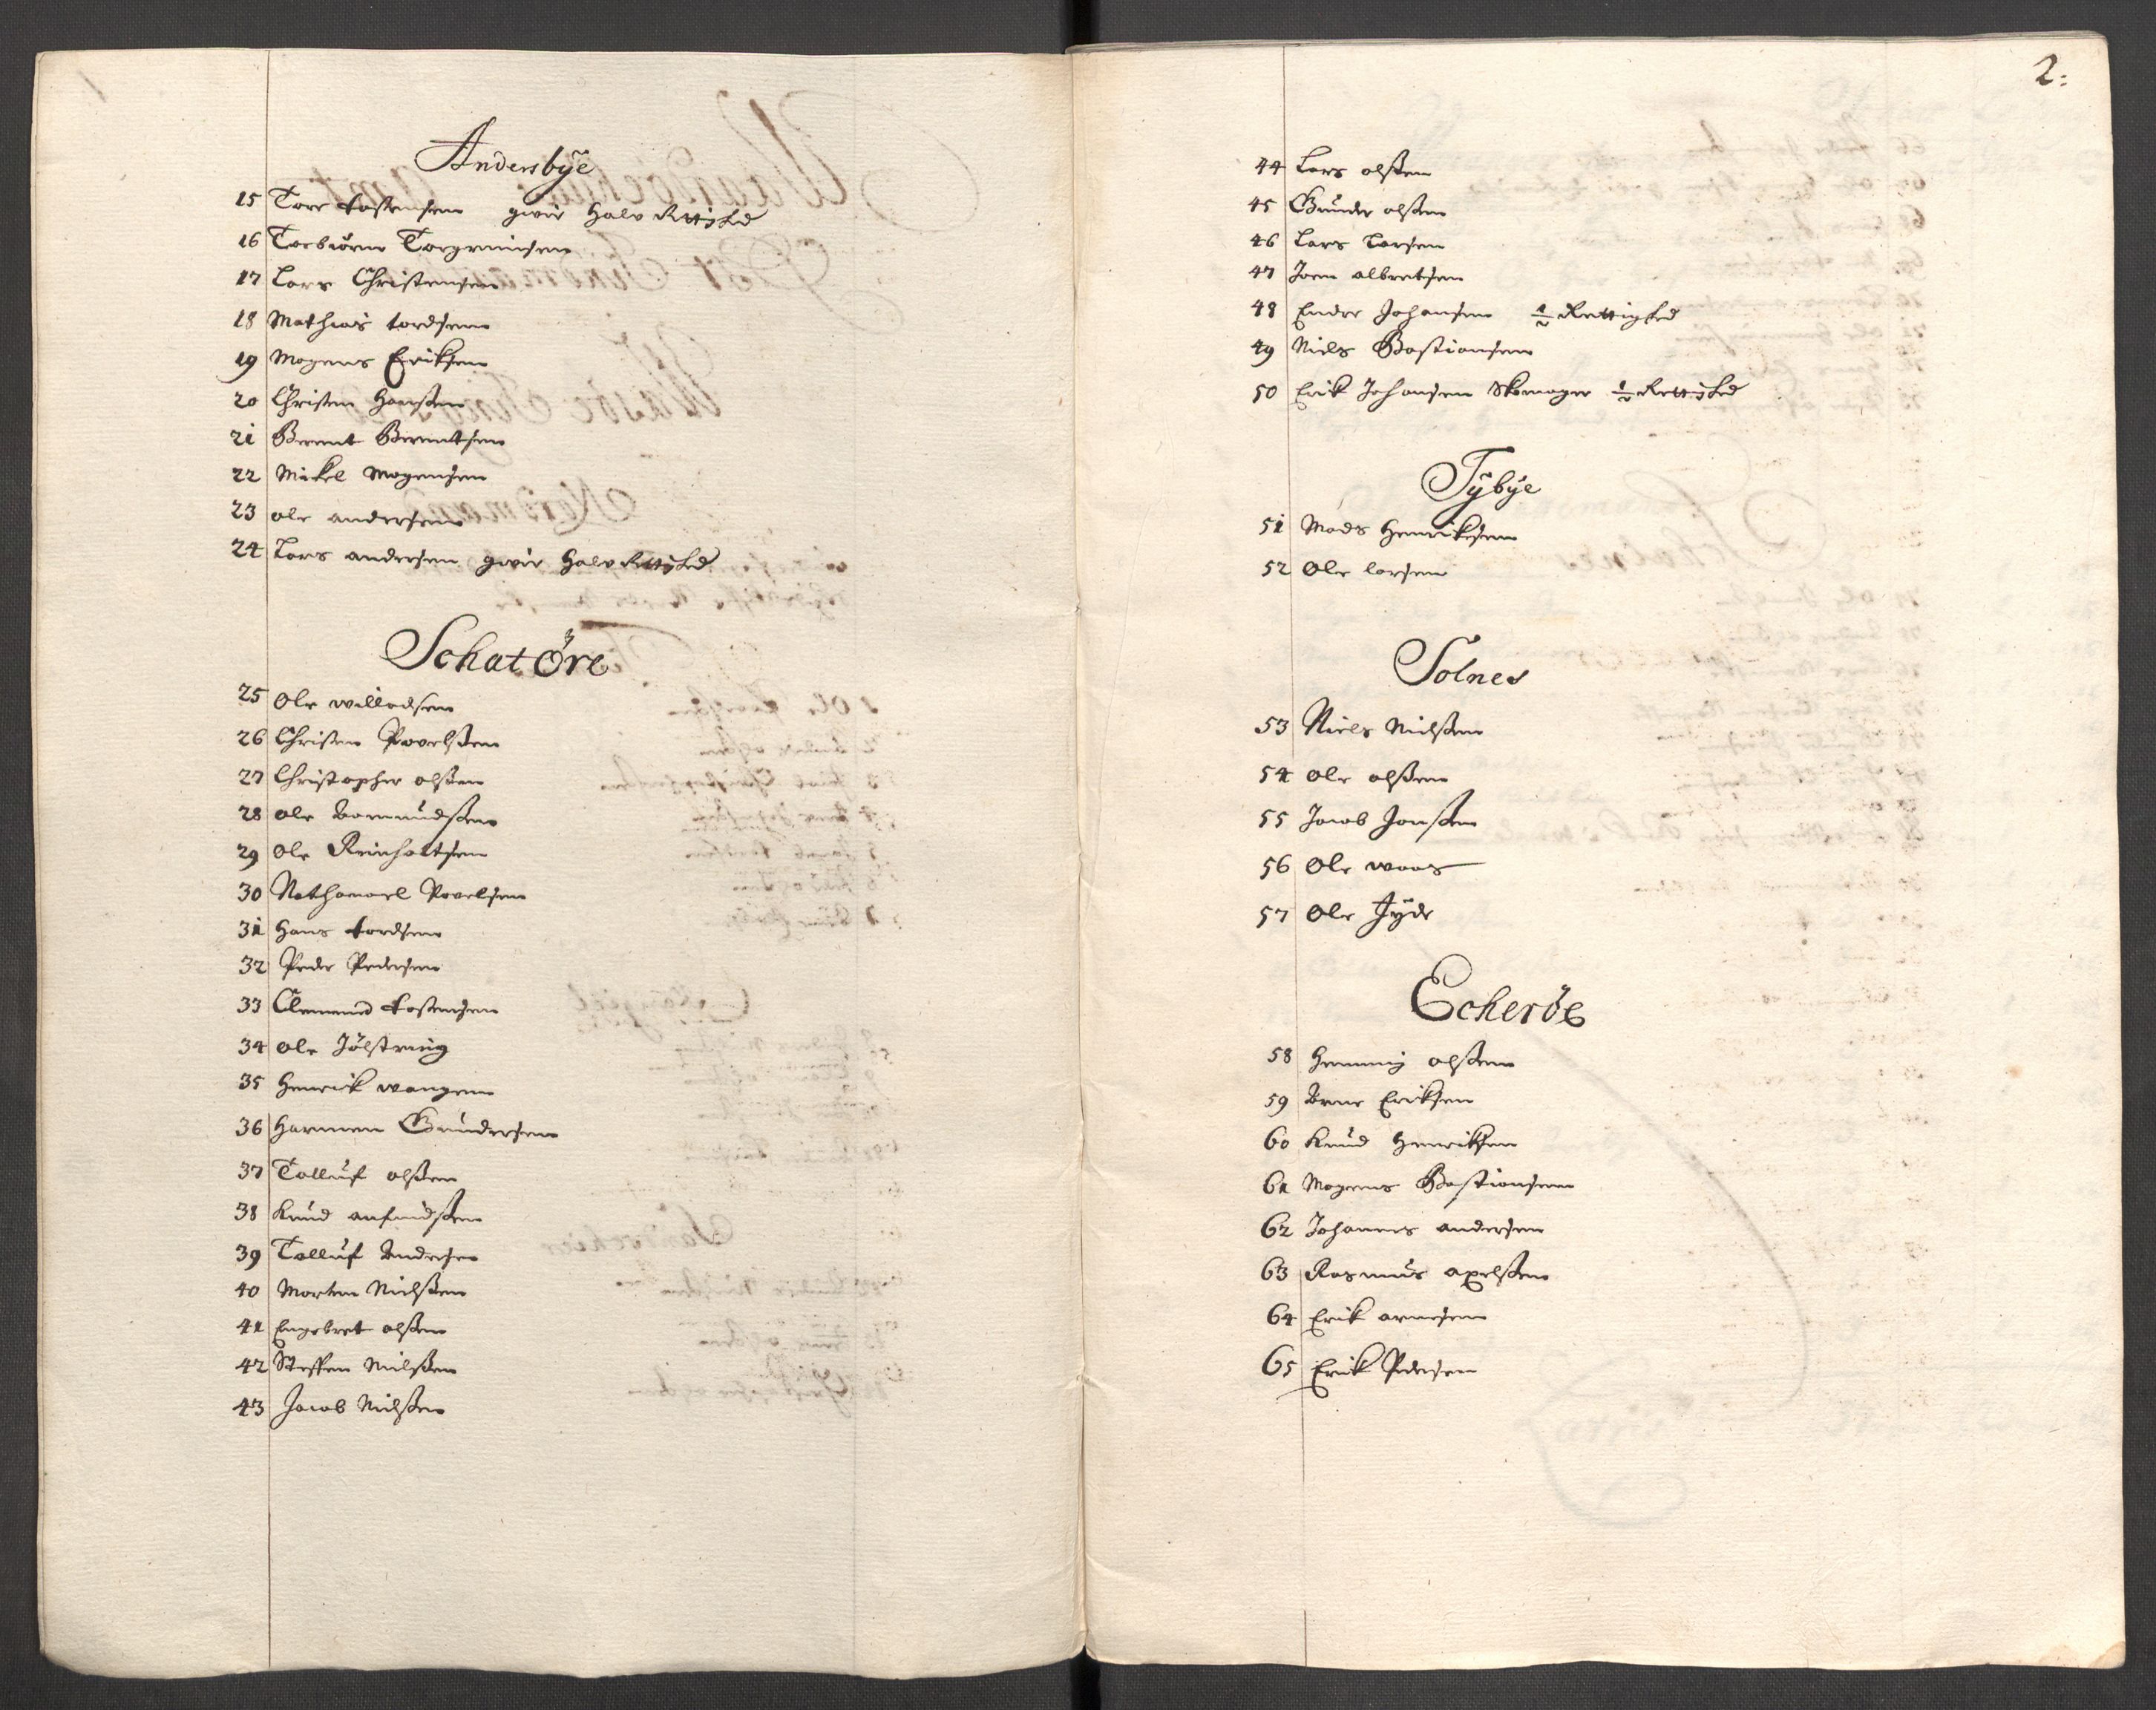 Andersbÿe
15 Tore tostensen givir Halv Rettighed
16 Torbiörn Torgrimsen
17 Lars Christensen
18 Mathias tordsen
19 Mogens Eriksen
20 Christen Hansen
21 Berent Berentsen
22 Mikel Mogensen
23 ole andersen
24 Lars andersen givir Halv Rettighed
Schatöre
25 Ole willadsen
26 Christen Povelsen
27 Christopher olsen
28 ole Aamundsen
29 Ole Reinholtsen
30 Nathanael Povelsen
31 Hans tordsen
32 Peder Pedersen
33 Clemend tostensen
34 ole Jölstring
35 Henrick wangen
36 Harmen Gundersen
37 Tolluf olsen
38 Knud anfindsen
39 Tolluf Andersen
40 Morten Nielsen
41 Engebret olsen
42 Steffen Nielsen
43 Jacob Nielsen
2:
44 Lars olsen
45 Gunder olsen
46 Lars Larsen
47 Joen albretsen
48 Endre Johansen 1/2 Rettighed
49 Niels Bastiansen
50 Erik Johansen Skomager 1/2 Rettighed
Tÿbÿe
51 Mads Henriksen
52 Ole larsen
Solnes
53 Niels Nielsen
54 Ole olsen
55 Jacob Jonsen
56 Ole waas
57 Ole Jyde
Echeröe
58 Henning olsen
59 Arne Eriksen
60 Knud Henriksen
61 Mogens Bastiansen
62 Johannes andersen
63 Rasmus axelsen
64 Erik arnesen
65 Erik Pedersen